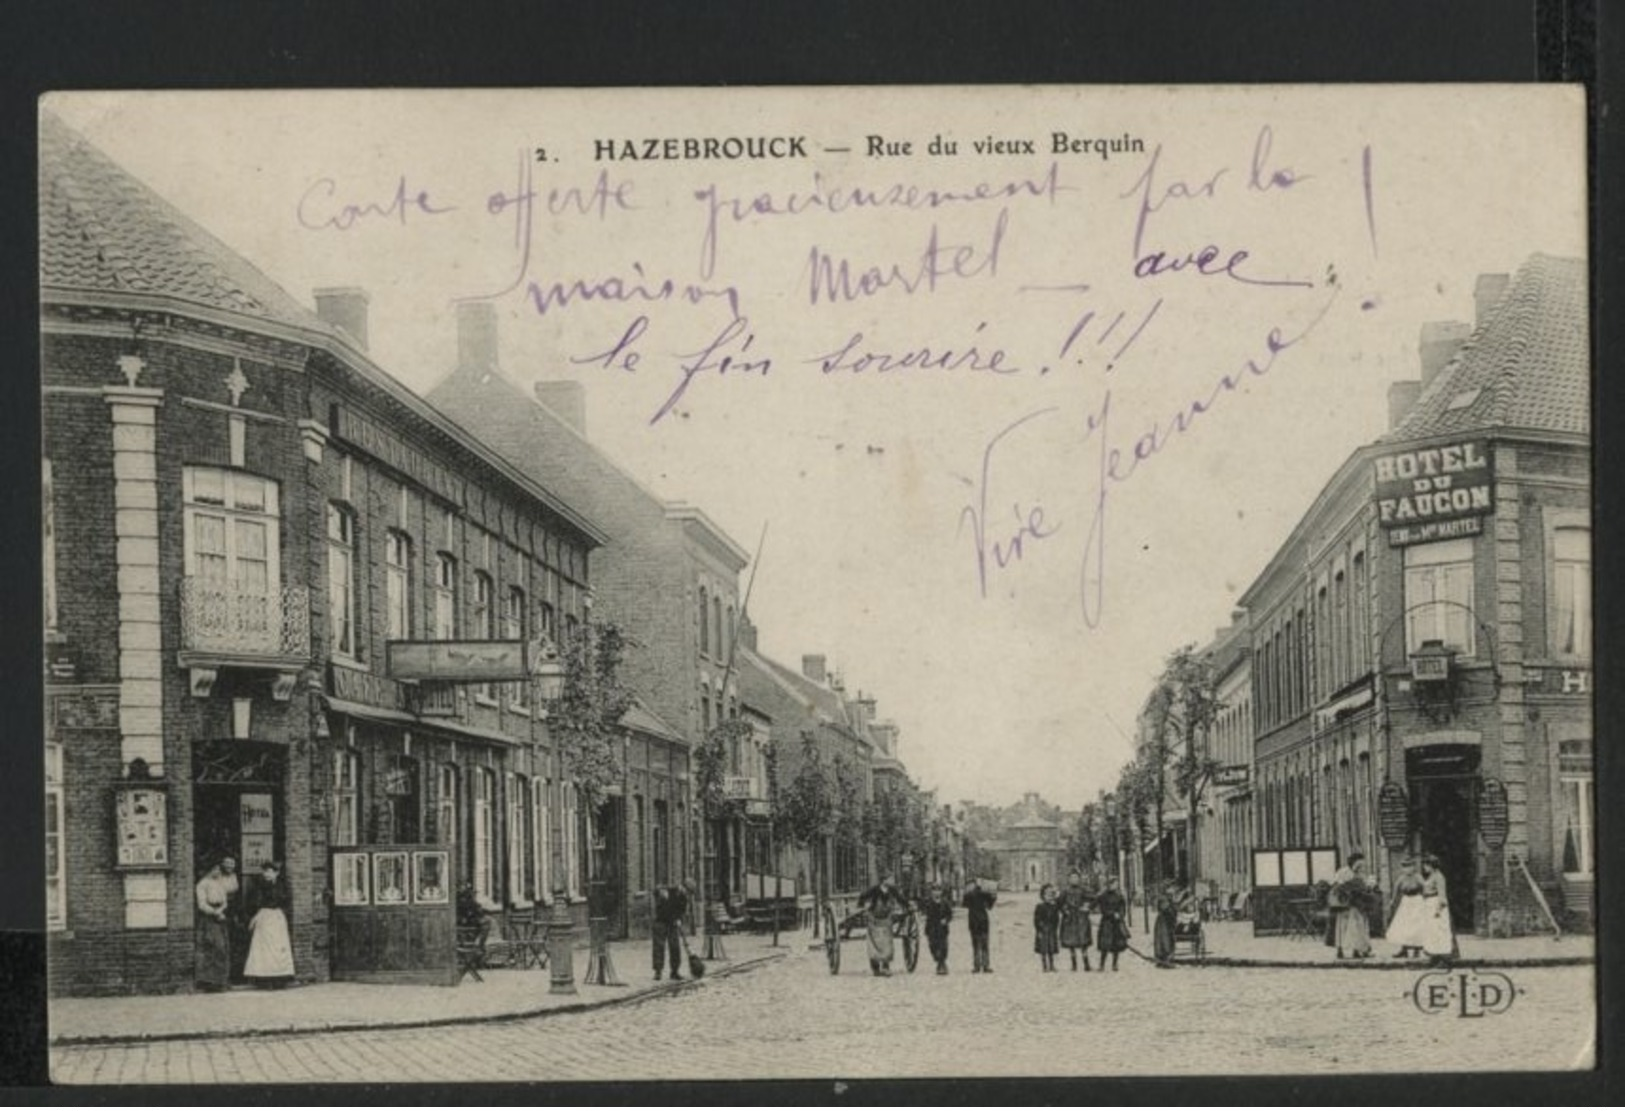 2. HAZEBROUCK — Rue du vieux Berquin
Carte offerte gracieusement par la
maison Martel — avec !
le fin sourire !!!
Vive Jeanne
HOTEL
DU
FAUCON
TENU PAR Mme MARTEL
HOTEL
H
HOTEL
E.L.D